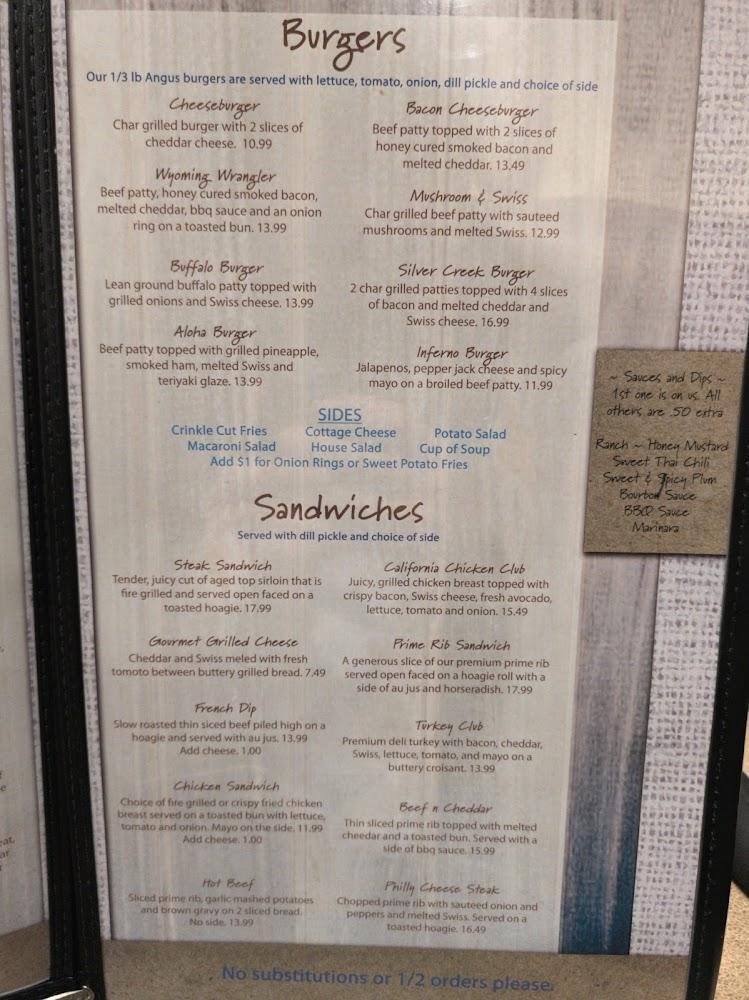 Burgers
Our 1/3 lb Angus burgers are served with lettuce, tomato, onion, dill pickle and choice of side
Cheeseburger
Char grilled burger with 2 slices of
cheddar cheese. 10.99
Wyoming Wrangler
Beef patty, honey cured smoked bacon,
melted cheddar, bbq sauce and an onion
ring on a toasted bun. 13.99
Buffalo Burger
Lean ground buffalo patty topped with
grilled onions and Swiss cheese. 13.99
Aloha Burger
Beef patty topped with grilled pineapple,
smoked ham, melted Swiss and
teriyaki glaze. 13.99
Bacon Cheeseburger
Beef patty topped with 2 slices of
honey cured smoked bacon and
melted cheddar. 13.49
Mushroom & Swiss
Char grilled beef patty with sauteed
mushrooms and melted Swiss. 12.99
Silver Creek Burger
2 char grilled patties topped with 4 slices
of bacon and melted cheddar and
Swiss cheese. 16.99
Inferno Burger
Jalapenos, pepper jack cheese and spicy
mayo on a broiled beef patty. 11.99
SIDES
Crinkle Cut Fries Cottage Cheese Potato Salad
Macaroni Salad House Salad Cup of Soup
Add $1 for Onion Rings or Sweet Potato Fries
Sandwiches
Served with dill pickle and choice of side
Steak Sandwich
Tender, juicy cut of aged top sirloin that is
fire grilled and served open faced on a
toasted hoagie. 17.99
Gourmet Grilled Cheese
Cheddar and Swiss meled with fresh
tomoto between buttery grilled bread. 7.49
French Dip
Slow roasted thin siced beef piled high on a
hoagie and served with au jus. 13.99
Add cheese. 1.00
Chicken Sandwich
Choice of fire grilled or crispy fried chicken
breast served on a toasted bun with lettuce,
tomato and onion. Mayo on the side. 11.99
Add cheese. 1.00
Hot Beef
Sliced prime rib, garlic mashed potatoes
and brown gravy on 2 sliced bread.
No side. 13.99
California Chicken Club
Juicy, grilled chicken breast topped with
crispy bacon, Swiss cheese, fresh avocado,
lettuce, tomato and onion. 15.49
Prime Rib Sandwich
A generous slice of our premium prime rib
served open faced on a hoagie roll with a
side of au jus and horseradish. 17.99
Turkey Club
Premium deli turkey with bacon, cheddar,
Swiss, lettuce, tomato, and mayo on a
buttery croisant. 13.99
Beef n Cheddar
Thin sliced prime rib topped with melted
cheedar and a toasted bun. Served with a
side of bbq sauce. 15.99
Philly Cheese Steak
Chopped prime rib with sauteed onion and
peppers and melted Swiss. Served on a
toasted hoagie. 16.49
No substitutions or 1/2 orders please.
~ Sauces and Dips ~
1st one is on us. All
others are .50 extra
Ranch ~ Honey Mustard
Sweet Thai Chili
Sweet & Spicy Plum
Bourbon Sauce
BBQ Sauce
Marinara